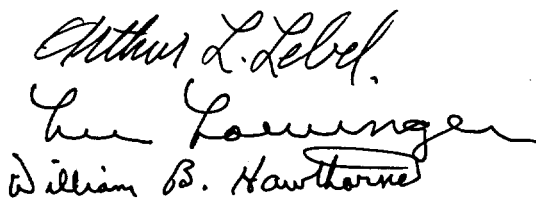 Arthur L. Lebel.
Lee Loevinger
William B. Hawthorne